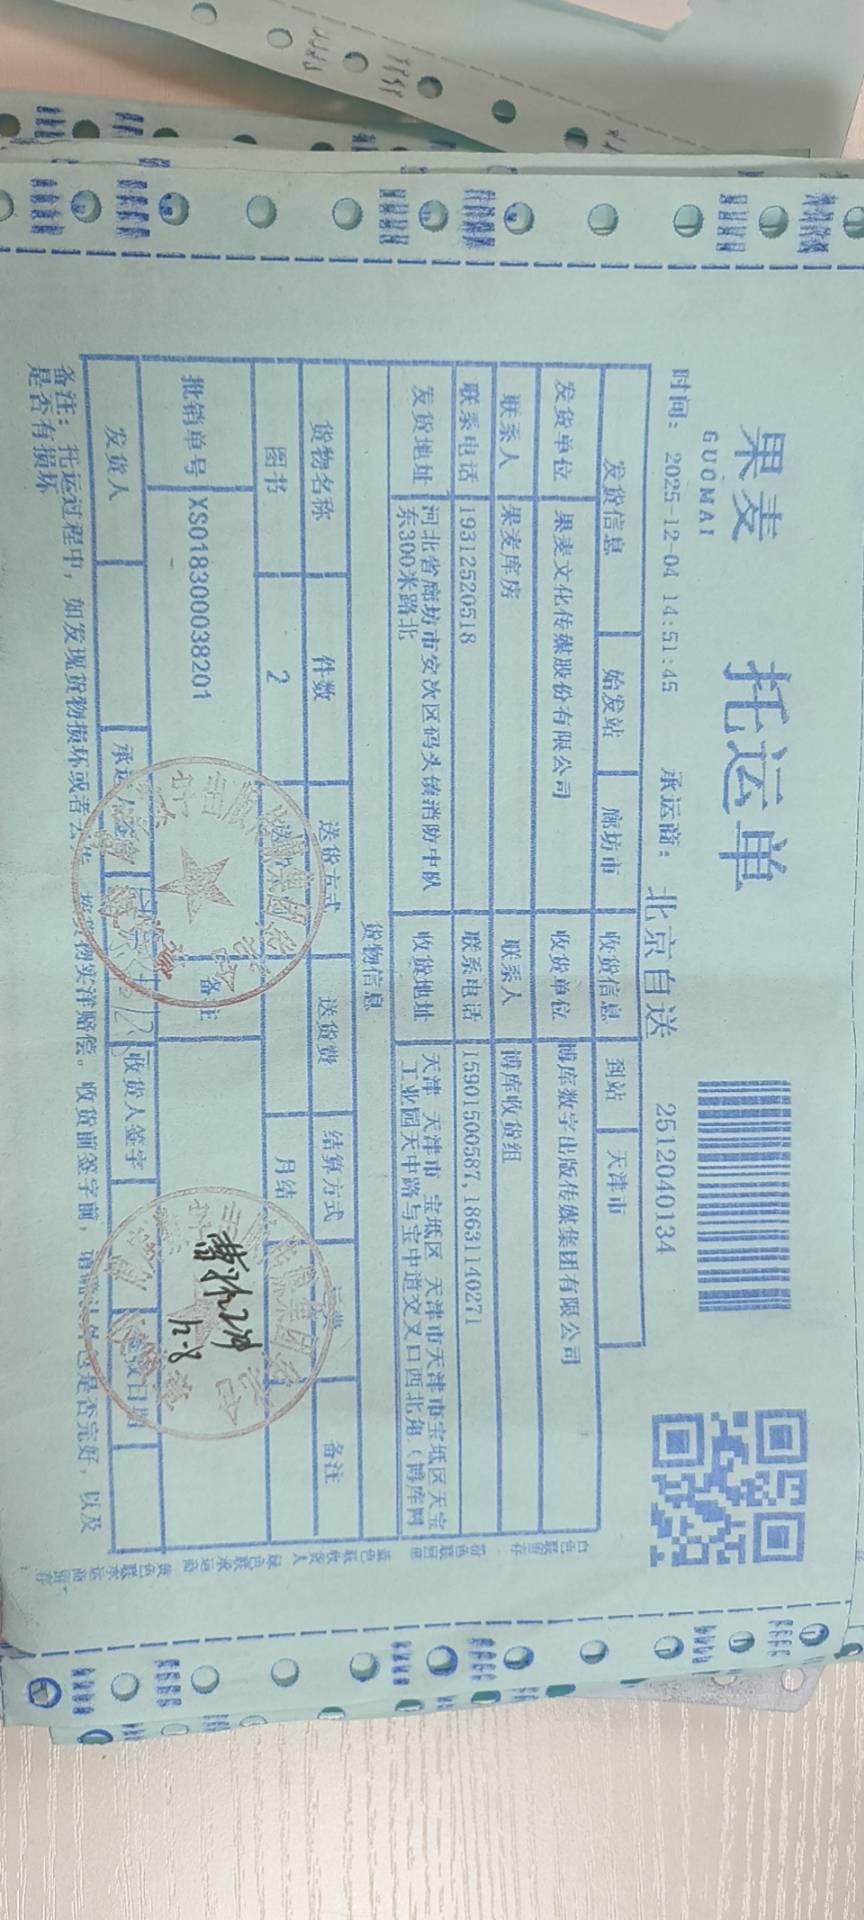 果麦
GUOMAI
托运单
时间: 2025-12-04 14:51:45 承运商: 北京自送 2512040134
发货信息 始发站 廊坊市 收货信息 到站 天津市
发货单位 果麦文化传媒股份有限公司 收货单位 博库数字出版传媒集团有限公司
联系人 果麦库房 联系人 博库收货组
联系电话 19312520518 联系电话 15901500587,18631140271
发货地址 河北省廊坊市安次区码头镇消防中队东300米路北 收货地址 天津 天津市 宝坻区 天津市天津市宝坻区天宝工业园天中路与宝中道交叉口西北角(博库网
货物信息
货物名称 件数 送货方式 送货费 结算方式 运费 备注
图书 2 月结
批销单号 XS018300038201 备注
发货人 承运人签字 收货人签字 签收日期
12-8
备注: 托运过程中, 如发现货物损坏或者丢失, 按货物实洋赔偿。收货前签字前, 请确认外包是否完好, 以及
是否有损坏
白色联留存
蓝色联收货人
绿色联承运商
黄色联承运商留存